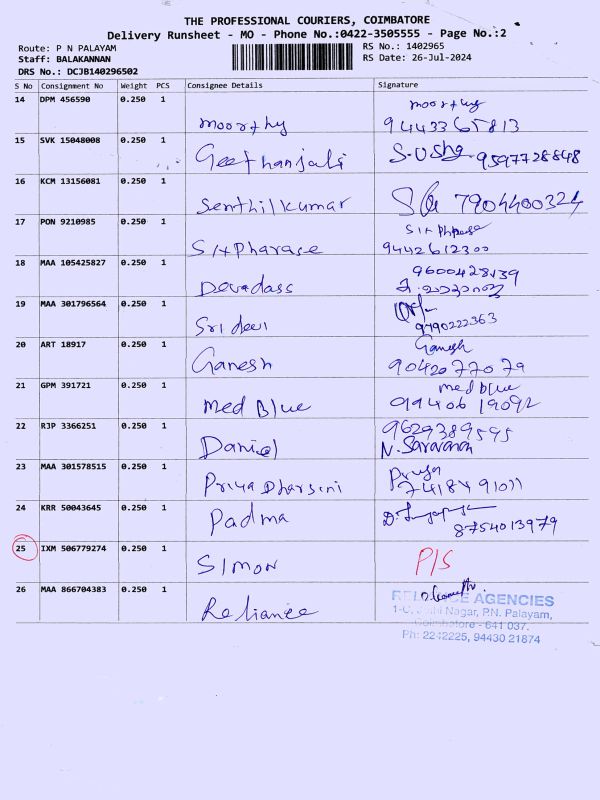 THE PROFESSIONAL COURIERS, COIMBATORE
Delivery Runsheet - MO - Phone No.:0422-3505555 - Page No.:2
Route: P N PALAYAM
RS No.: 1402965
Staff: BALAKANNAN
RS Date: 26-Jul-2024
DRS No.: DCJB140296502
S No Consignment No Weight PCS Consignee Details Signature
14 DPM 456590 0.250 1 moorthy moorthy
9443365813
15 SVK 15048008 0.250 1 Geethanjali S. Usha 9597728848
16 KCM 13156081 0.250 1 Senthilkumar 7904400324
17 PON 9210985 0.250 1 Six Pharase Six Pharase
9442612300
18 MAA 105425827 0.250 1 Devadass 9600428439
19 MAA 301796564 0.250 1 Sridevi
9790222363
20 ART 18917 0.250 1 Ganesh Ganesh
9042077079
21 GPM 391721 0.250 1 Med Blue med blue
9940619092
22 RJP 3366251 0.250 1 Daniel 9629389595
N. Saravanan
23 MAA 301578515 0.250 1 Priya Dharsini Priya
7418491011
24 KRR 50043645 0.250 1 Padma
8754013979
25 IXM 506779274 0.250 1 Simon P/S
26 MAA 866704383 0.250 1 Reliance
AGENCIES
Nagar, P.N. Palayam,
Coimbatore - 641 037.
Ph: 2242225, 94430 21874